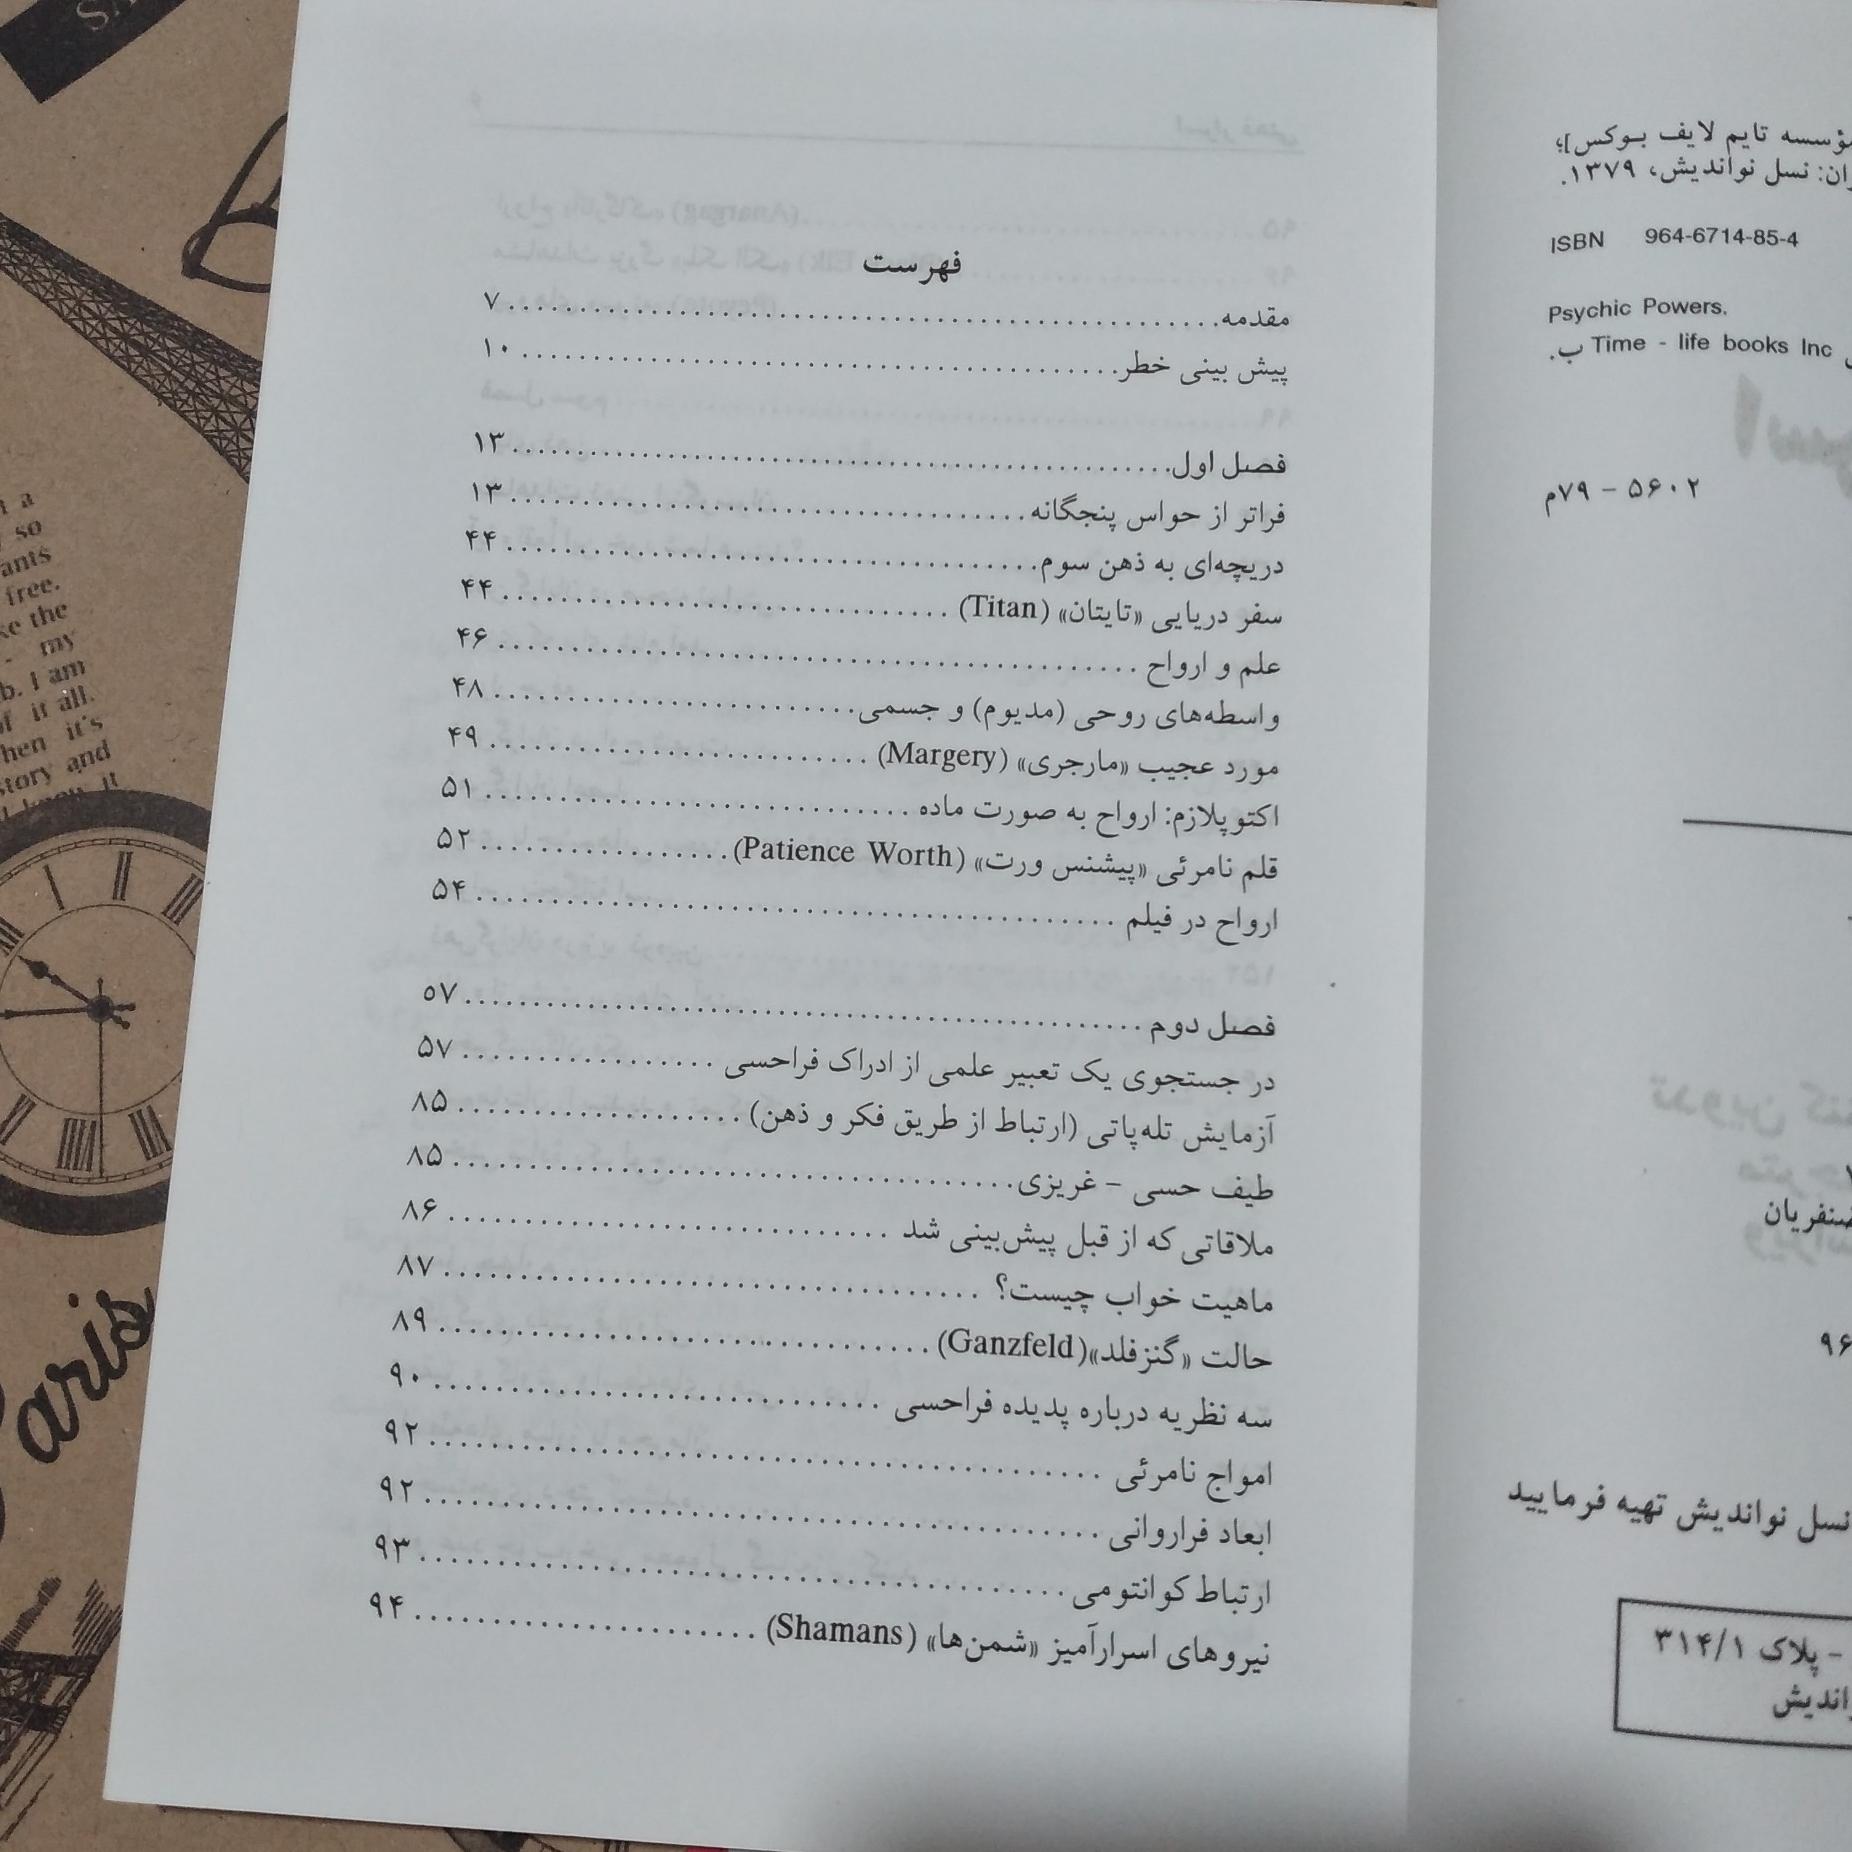 فهرست
مقدمه ........ ۷
پیش بینی خطر ........ ۱۰
فصل اول ........ ۱۳
فراتر از حواس پنجگانه ........ ۱۳
دریچه‌ای به ذهن سوم ........ ۴۴
سفر دریایی «تایتان» (Titan) ........ ۴۴
علم و ارواح ........ ۴۶
واسطه‌های روحی (مدیوم) و جسمی ........ ۴۸
مورد عجیب «مارجری» (Margery) ........ ۴۹
اکتوپلازم: ارواح به صورت ماده ........ ۵۱
قلم نامرئی «پیشنس ورت» (Patience Worth) ........ ۵۲
ارواح در فیلم ........ ۵۴
فصل دوم ........ ۵۷
در جستجوی یک تعبیر علمی از ادراک فراحسی ........ ۵۷
آزمایش تله‌پاتی (ارتباط از طریق فکر و ذهن) ........ ۸۵
طیف حسی - غریزی ........ ۸۵
ملاقاتی که از قبل پیش‌بینی شد ........ ۸۶
ماهیت خواب چیست؟ ........ ۸۷
حالت «گنزفلد»(Ganzfeld) ........ ۸۹
سه نظریه درباره پدیده فراحسی ........ ۹۰
امواج نامرئی ........ ۹۲
ابعاد فراروانی ........ ۹۲
ارتباط کوانتومی ........ ۹۳
نیروهای اسرارآمیز «شمن‌ها» (Shamans) ........ ۹۴
تایم لایف بوکس]؛
نسل نواندیش، ۱۳۷۹.
ISBN 964-6714-85-4
Psychic Powers.
Time - life books Inc ب.
۵۶۰۲ - ۷۹م
نسل نواندیش تهیه فرمایید
- پلاک ۳۱۴/۱
a
so
ants
free.
the
my
b. I am
of it all.
hen it's
story and
it
aris